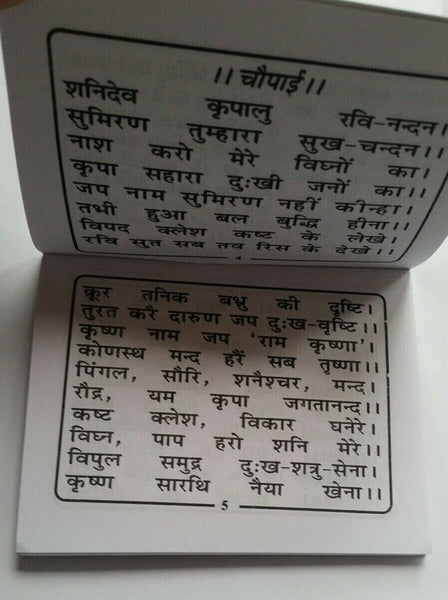 ।। चौपाई ।।
शनिदेव कृपालु रवि-नन्दन।
सुमिरण तुम्हारा सुख-चन्दन।।
नाश करो मेरे विघ्नों का।
कृपा सहारा दुःखी जनों का।।
जप नाम सुमिरण नहीं कीन्हा।
तभी हुआ बल बुद्धि हीना।।
विपद क्लेश कष्ट के लेखे।
रवि सुत सब तव रिस के देखे।।
4
क्रूर तनिक बभ्रु की दृष्टि।
तुरत करै दारुण जप दुःख-वृष्टि।।
कृष्ण नाम जप 'राम कृष्णा'।
कोणस्थ मन्द हरैं सब तृष्णा।।
पिंगल, सौरि, शनैश्चर, मन्द।
रौद्र, यम कृपा जगतानन्द।।
कष्ट क्लेश, विकार घनेरे।
विघ्न, पाप हरो शनि मेरे।।
विपुल समुद्र दुःख-शत्रु-सेना।
कृष्ण सारथि नैया खेना।।
5